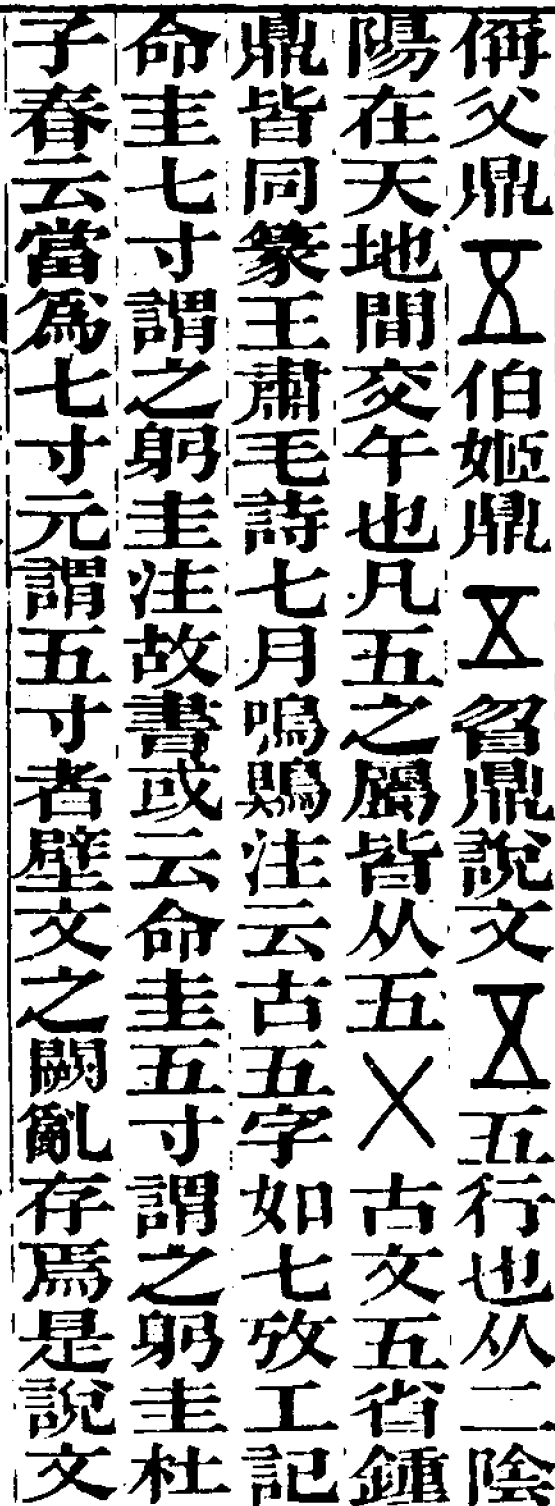 偁父鼎𠄡伯姬鼎𠄡曶鼎說文𠄡五行也从二陰
陽在天地間交午也凡五之屬皆从五㐅古文五省鍾
鼎皆同篆王肅毛詩七月鳴鶪注云古五字如七攷工記
命圭七寸謂之躬圭注故書或云命圭五寸謂之躬圭杜
子春云當爲七寸元謂五寸者璧文之闕亂存焉是說文